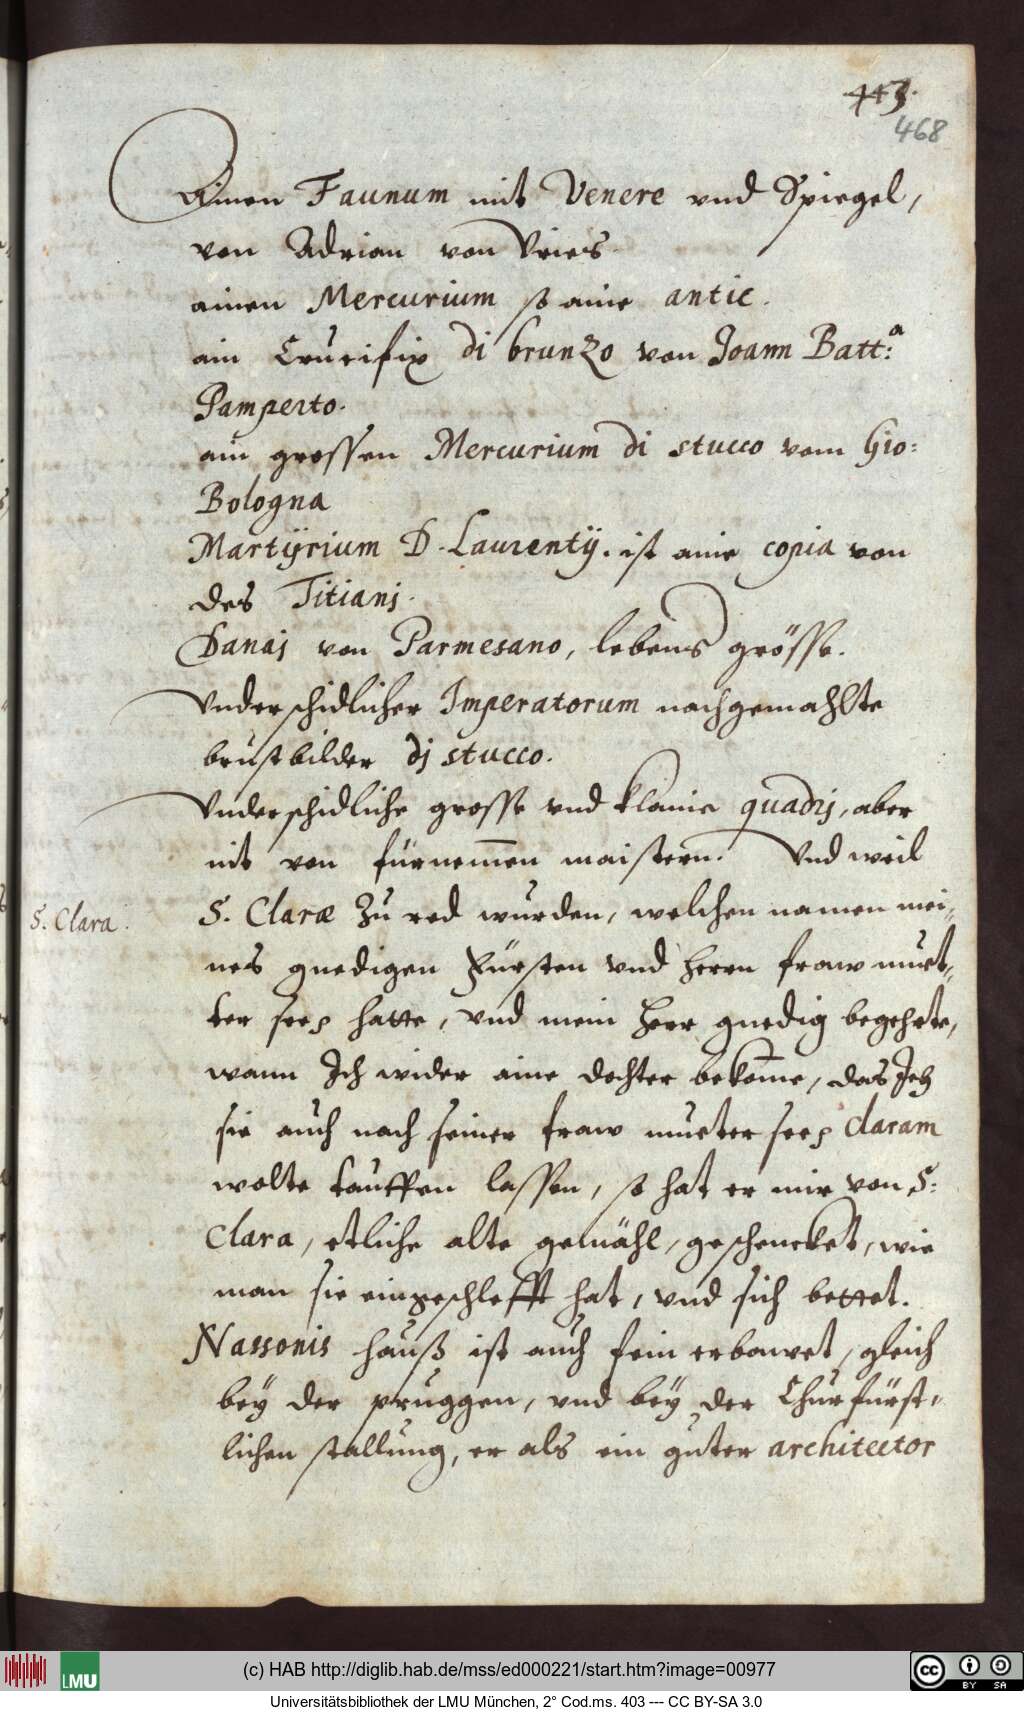 443.
468
Ainen Faunum mit Venere vnd Spiegel,
von Adrian von Vries.
ainen Mercurium so aine antic.
ain Crucifix di brunzo von Joann Batt:a
Pamperto.
ain grossen Mercurium di stucco vom Gio:
Bologna
Martÿrium D. Laurentÿ. ist aine copia von
des Titianj.
Danaj von Parmesano, lebens grösse.
Vnderschidlicher Imperatorum nachgemahlte
brustbilder dj stucco.
Vnderschidliche grosse vnd klaine quadrj, aber
nit von fürnem̄en maistern. Vnd weil
S. Clara.
S. Claræ Zu red wurden, welchen namen mei„
nes gnedigen Fürsten vnd herrn fraw muet„
ter hatte, vnd mein Herr gnedig begehrte,
wann Ich wider aine dochter bekom̄e, das Ich
sie auch nach seiner fraw mueter Claram
wolte tauffen lassen, so hat er mir von S:
Clara, etliche alte gemähl, geschencket, wie
man sie eingeschlefft hat, vnd sich bettet.
Nassonis hauß ist auch fein erbawet, gleich
beÿ der pruggen, vnd beÿ der Churfürst„
lichen stallung, er als ein guter architector
LMU
(c) HAB http://diglib.hab.de/mss/ed000221/start.htm?image=00977
cc BY SA
Universitätsbibliothek der LMU München, 2° Cod.ms. 403 --- CC BY-SA 3.0